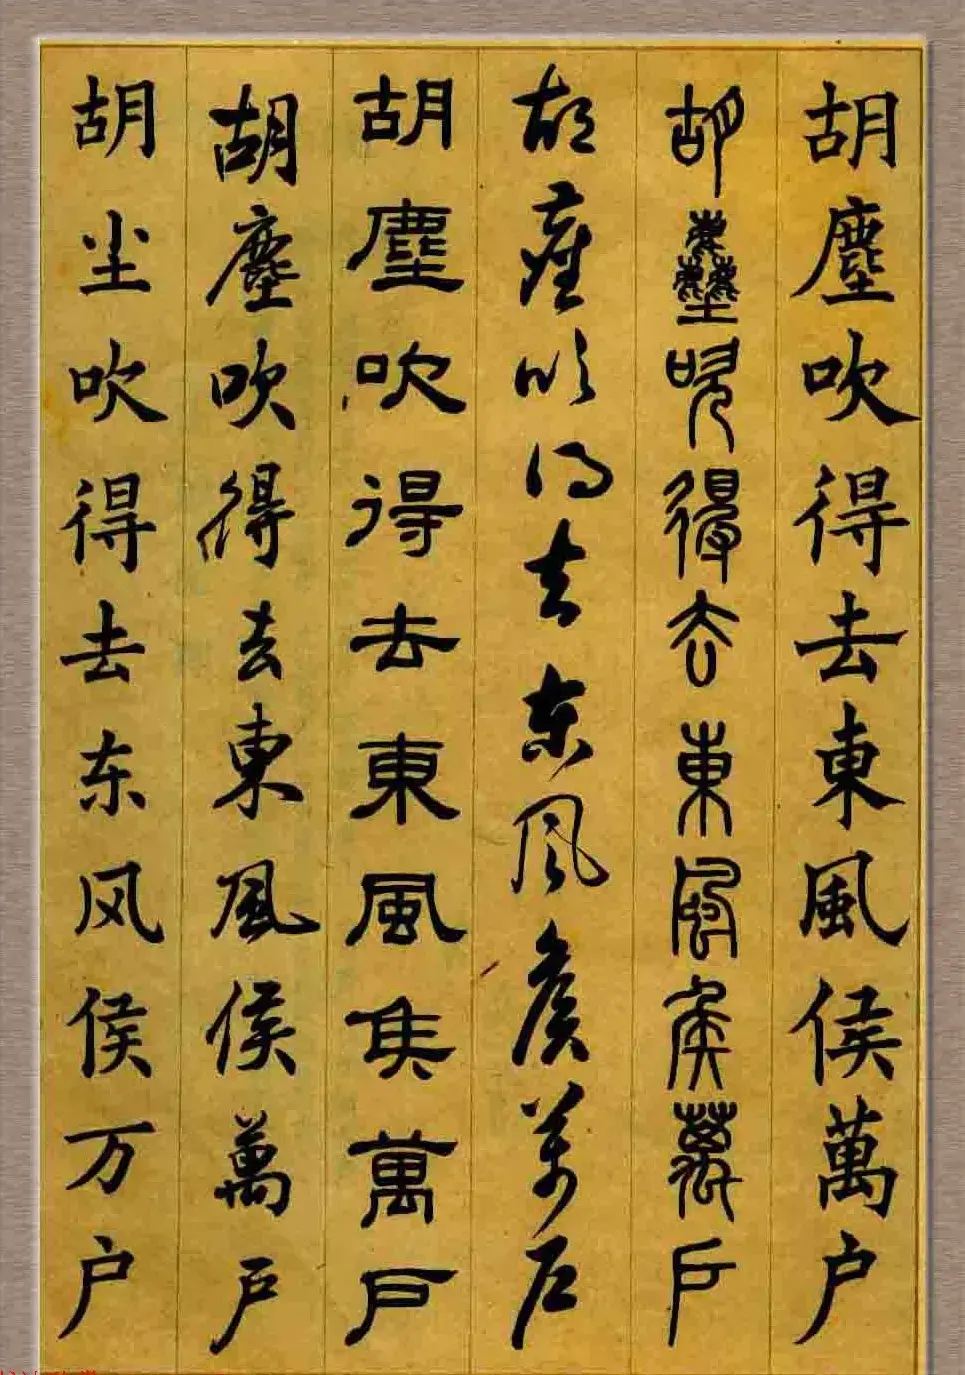 胡塵吹得去東風侯萬户
胡塵吹得去東風侯萬戶
胡塵吹得去东風侯萬户
胡塵吹得去東風侯萬戶
胡塵吹得去東風侯萬户
胡尘吹得去东风侯万户